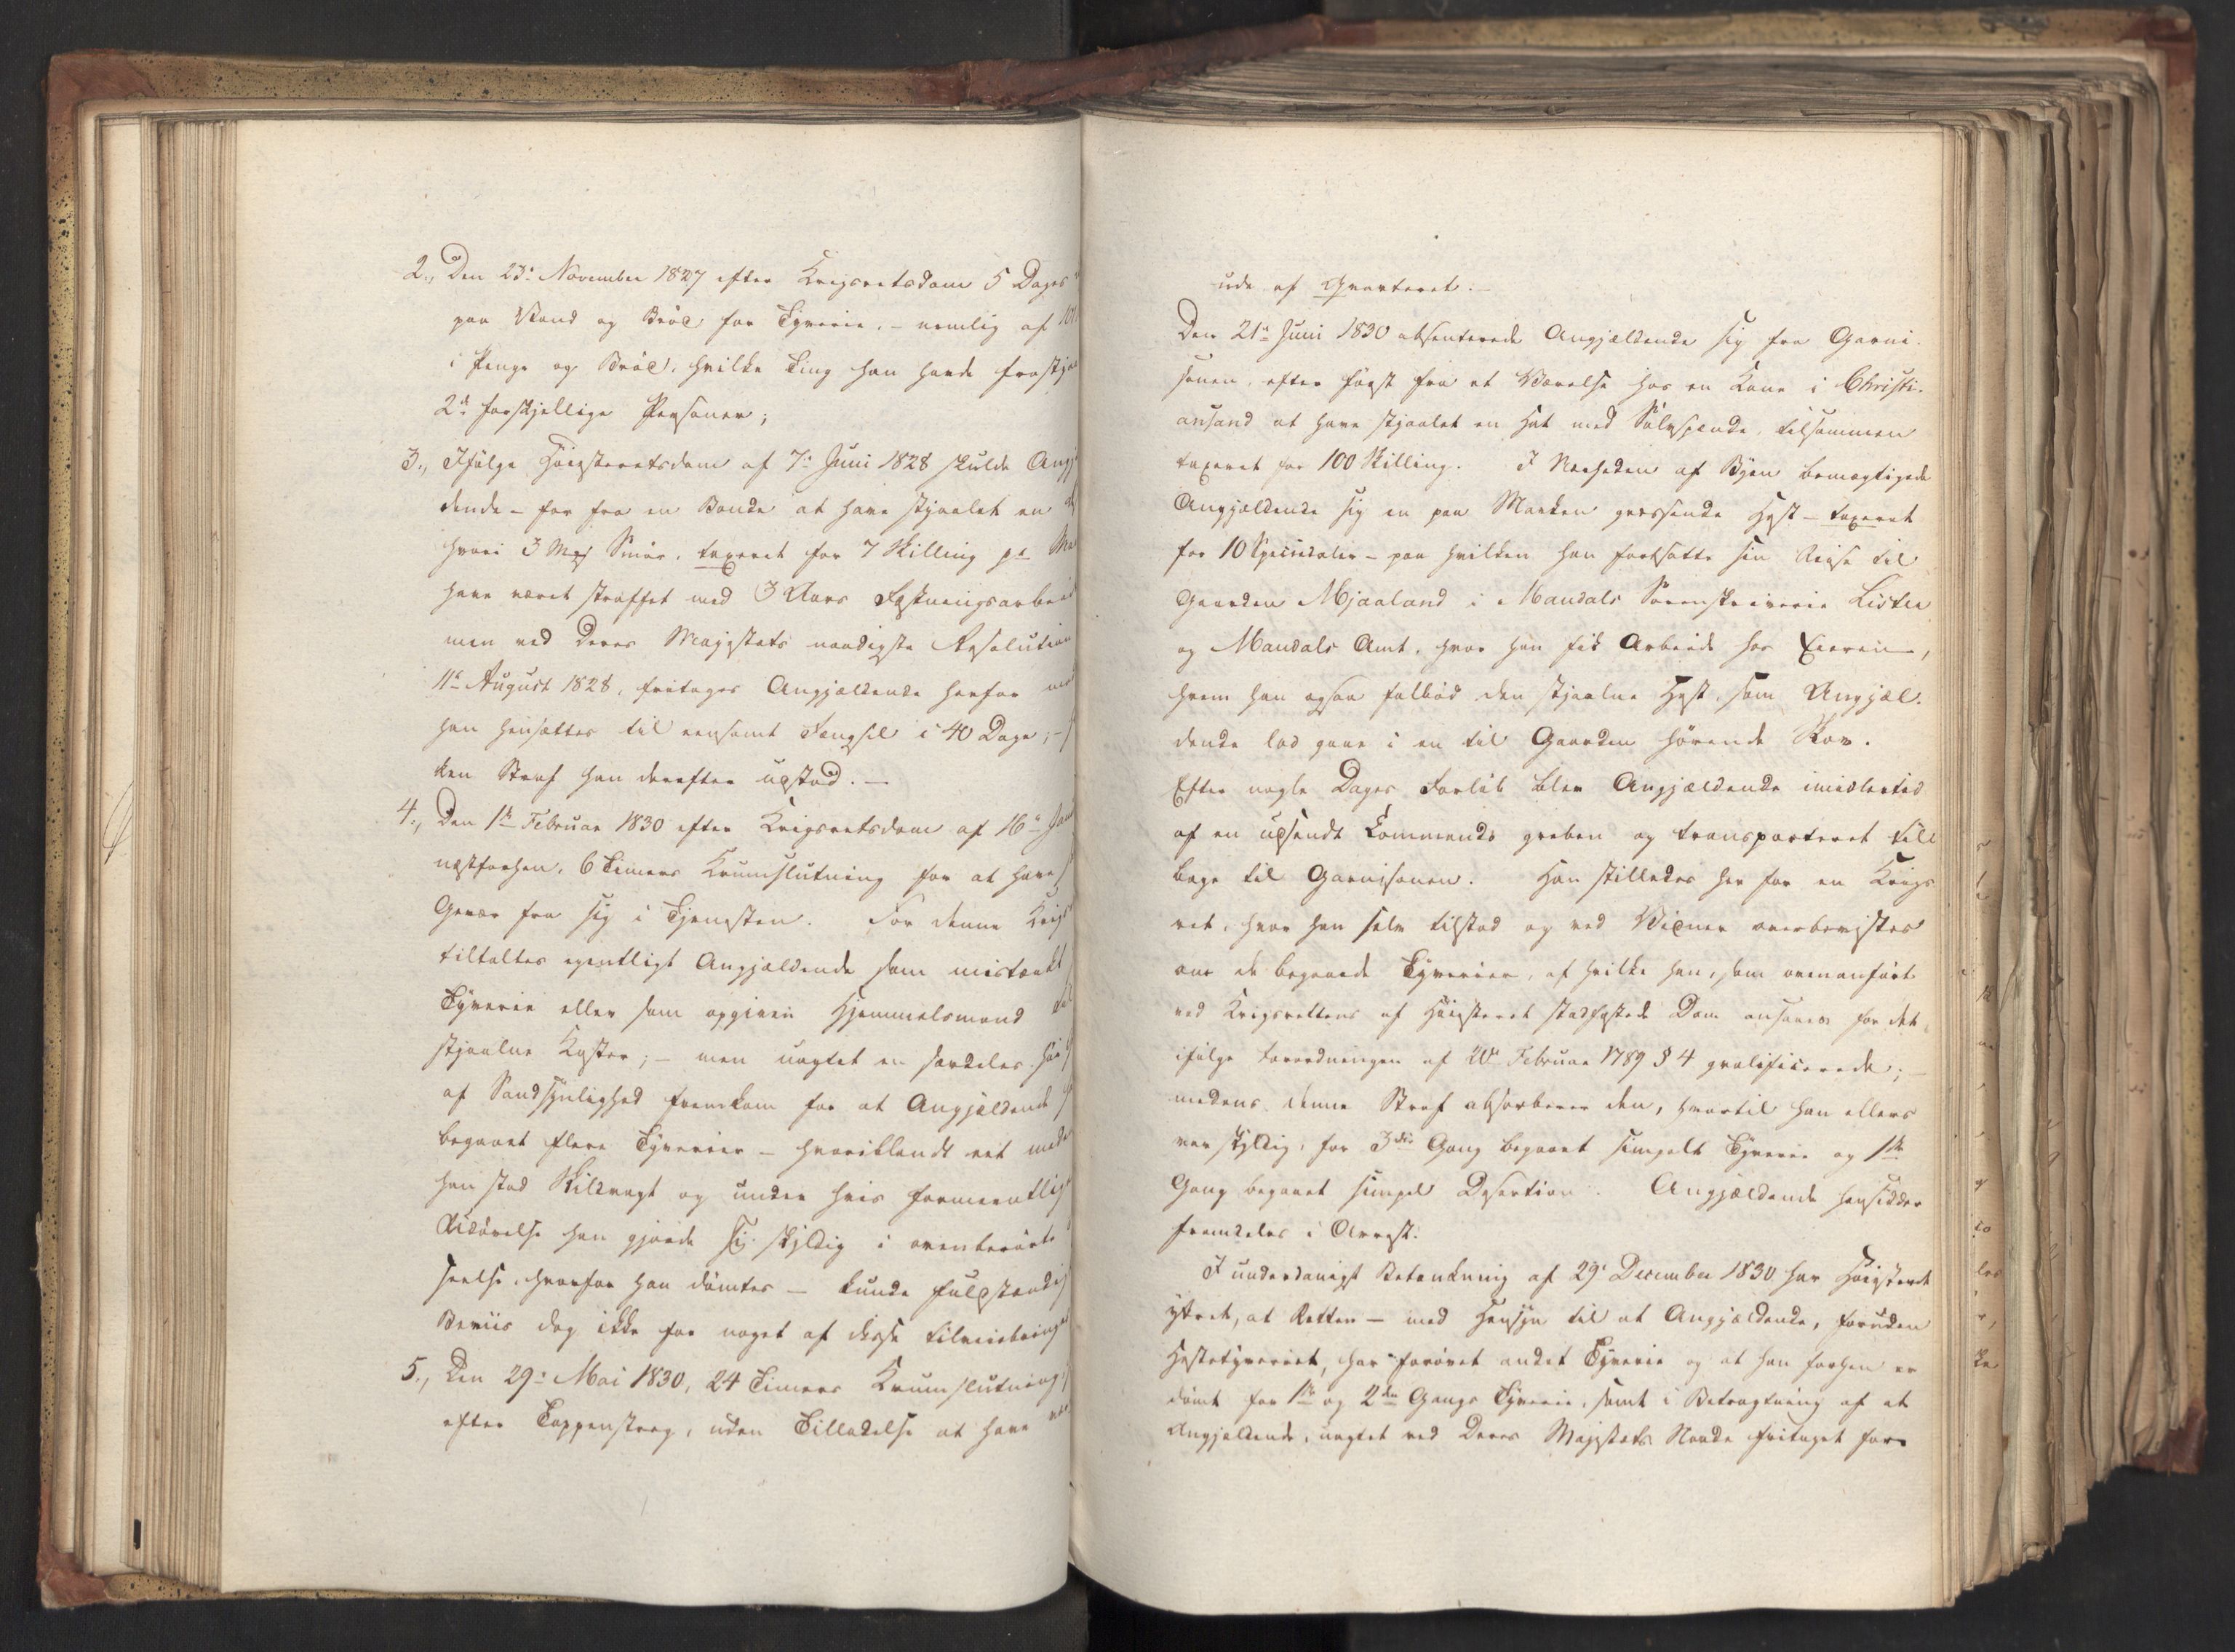 2., Den 23de November 1827 efter Krigsretsdom 5 Dages
paa Vand og Brød for Tyverie, – nemlig af 101
i Penge og Brød, hvilke Ting han havde frastjaa
2de forskjellige Personer;
3., Ifølge Høiesteretsdom af 7de Juni 1828 skulde Angj
dende – for fra en Bonde at have stjaalet en
hvori 3 Mrk Smør, taxeret for 7 Skilling pr Ma
have været straffet med 3 Aars Fæstningsarbeid
men ved Deres Majestæts naadigste Resolution
11te August 1828, fritages Angjældende herfor mod
han hensættes til eensomt Fængsel i 40 Dage; –
ken Straf han derefter udstod. –
4., Den 1ste Februar 1830 efter Krigsretsdom af 16de Jan
næstforhen, 6 Timers Krumslutning for at have
Gevær fra sig i Tjenesten. For denne Krigs
tiltaltes egentligt Angjældende som mistænkt
Tyverie eller som opgiven Hjemmelsmand til
stjaalne Koster; – men uagtet en særdeles høi
af Sandsynlighed fremkom for at Angjældende
begaaet flere Tyverier – hvoriblandt eet meda
han stod Skildvagt og under hvis formeentlige
Udøvelse han gjorde sig skyldig i ovenberørte
seelse, hvorfor han dømtes – kunde fuldstændig
Beviis dog ikke for noget af disse tilveiebringes
5., Den 29de Mai 1830, 24 Timers Krumslutning,
efter Tappenstreg, uden Tilladelse at have været
ude af Qvarteret. –
Den 21de Juni 1830 absenterede Angjældende sig fra Garni-
sonen, efter først fra et Værelse hos en Kone i Christi-
ansand at have stjaalet en Hat med Sølvspænde, tilsammen
taxeret for 100 Skilling. I Nærheden af Byen bemægtigede
Angjældende sig en paa Marken græssende Hest – taxeret
for 10 Speciedaler – paa hvilken han fortsatte sin Reise til
Gaarden Mjaaland i Mandals Sorenskriverie Lister
og Mandals Amt, hvor han fik Arbeide hos Eieren,
hvem han ogsaa falbød den stjaalne Hest, som Angjæl-
dende lod gaae i en til Gaarden hørende Skov.
Efter nogle Dages Forløb blev Angjældende imidlertid
af en udsendt Commando greben og transporteret til
bage til Garnisonen. Han stilledes her for en Krigs
ret, hvor han selv tilstod og ved Vidner overbevistes
om de begaaede Tyverier, af hvilke han, som ovenanført
ved Krigsrettens af Høiesteret stadfæstede Dom ansaaes for det
ifølge Forordningen af 20de Februar 1789 § 4 qvalificerede; –
medens denne Straf absorberer den, hvortil han ellers
var skyldig, for 3die Gang begaaet simpelt Tyverie og 1ste
Gang begaaet simpel Desertion. Angjældende hensidder
fremdeles i Arrest.
I underdanigst Betænkning af 29de December 1830 har Høiesteret
yttret, at Retten – med Hensyn til at Angjældende, foruden
Hestetyveriet, har forøvet andet Tyverie og at han forhen er
dømt for 1ste og 2den Gangs Tyverie, samt i Betragtning af at
Angjældende, uagtet ved Deres Majestæts Naade fritaget for